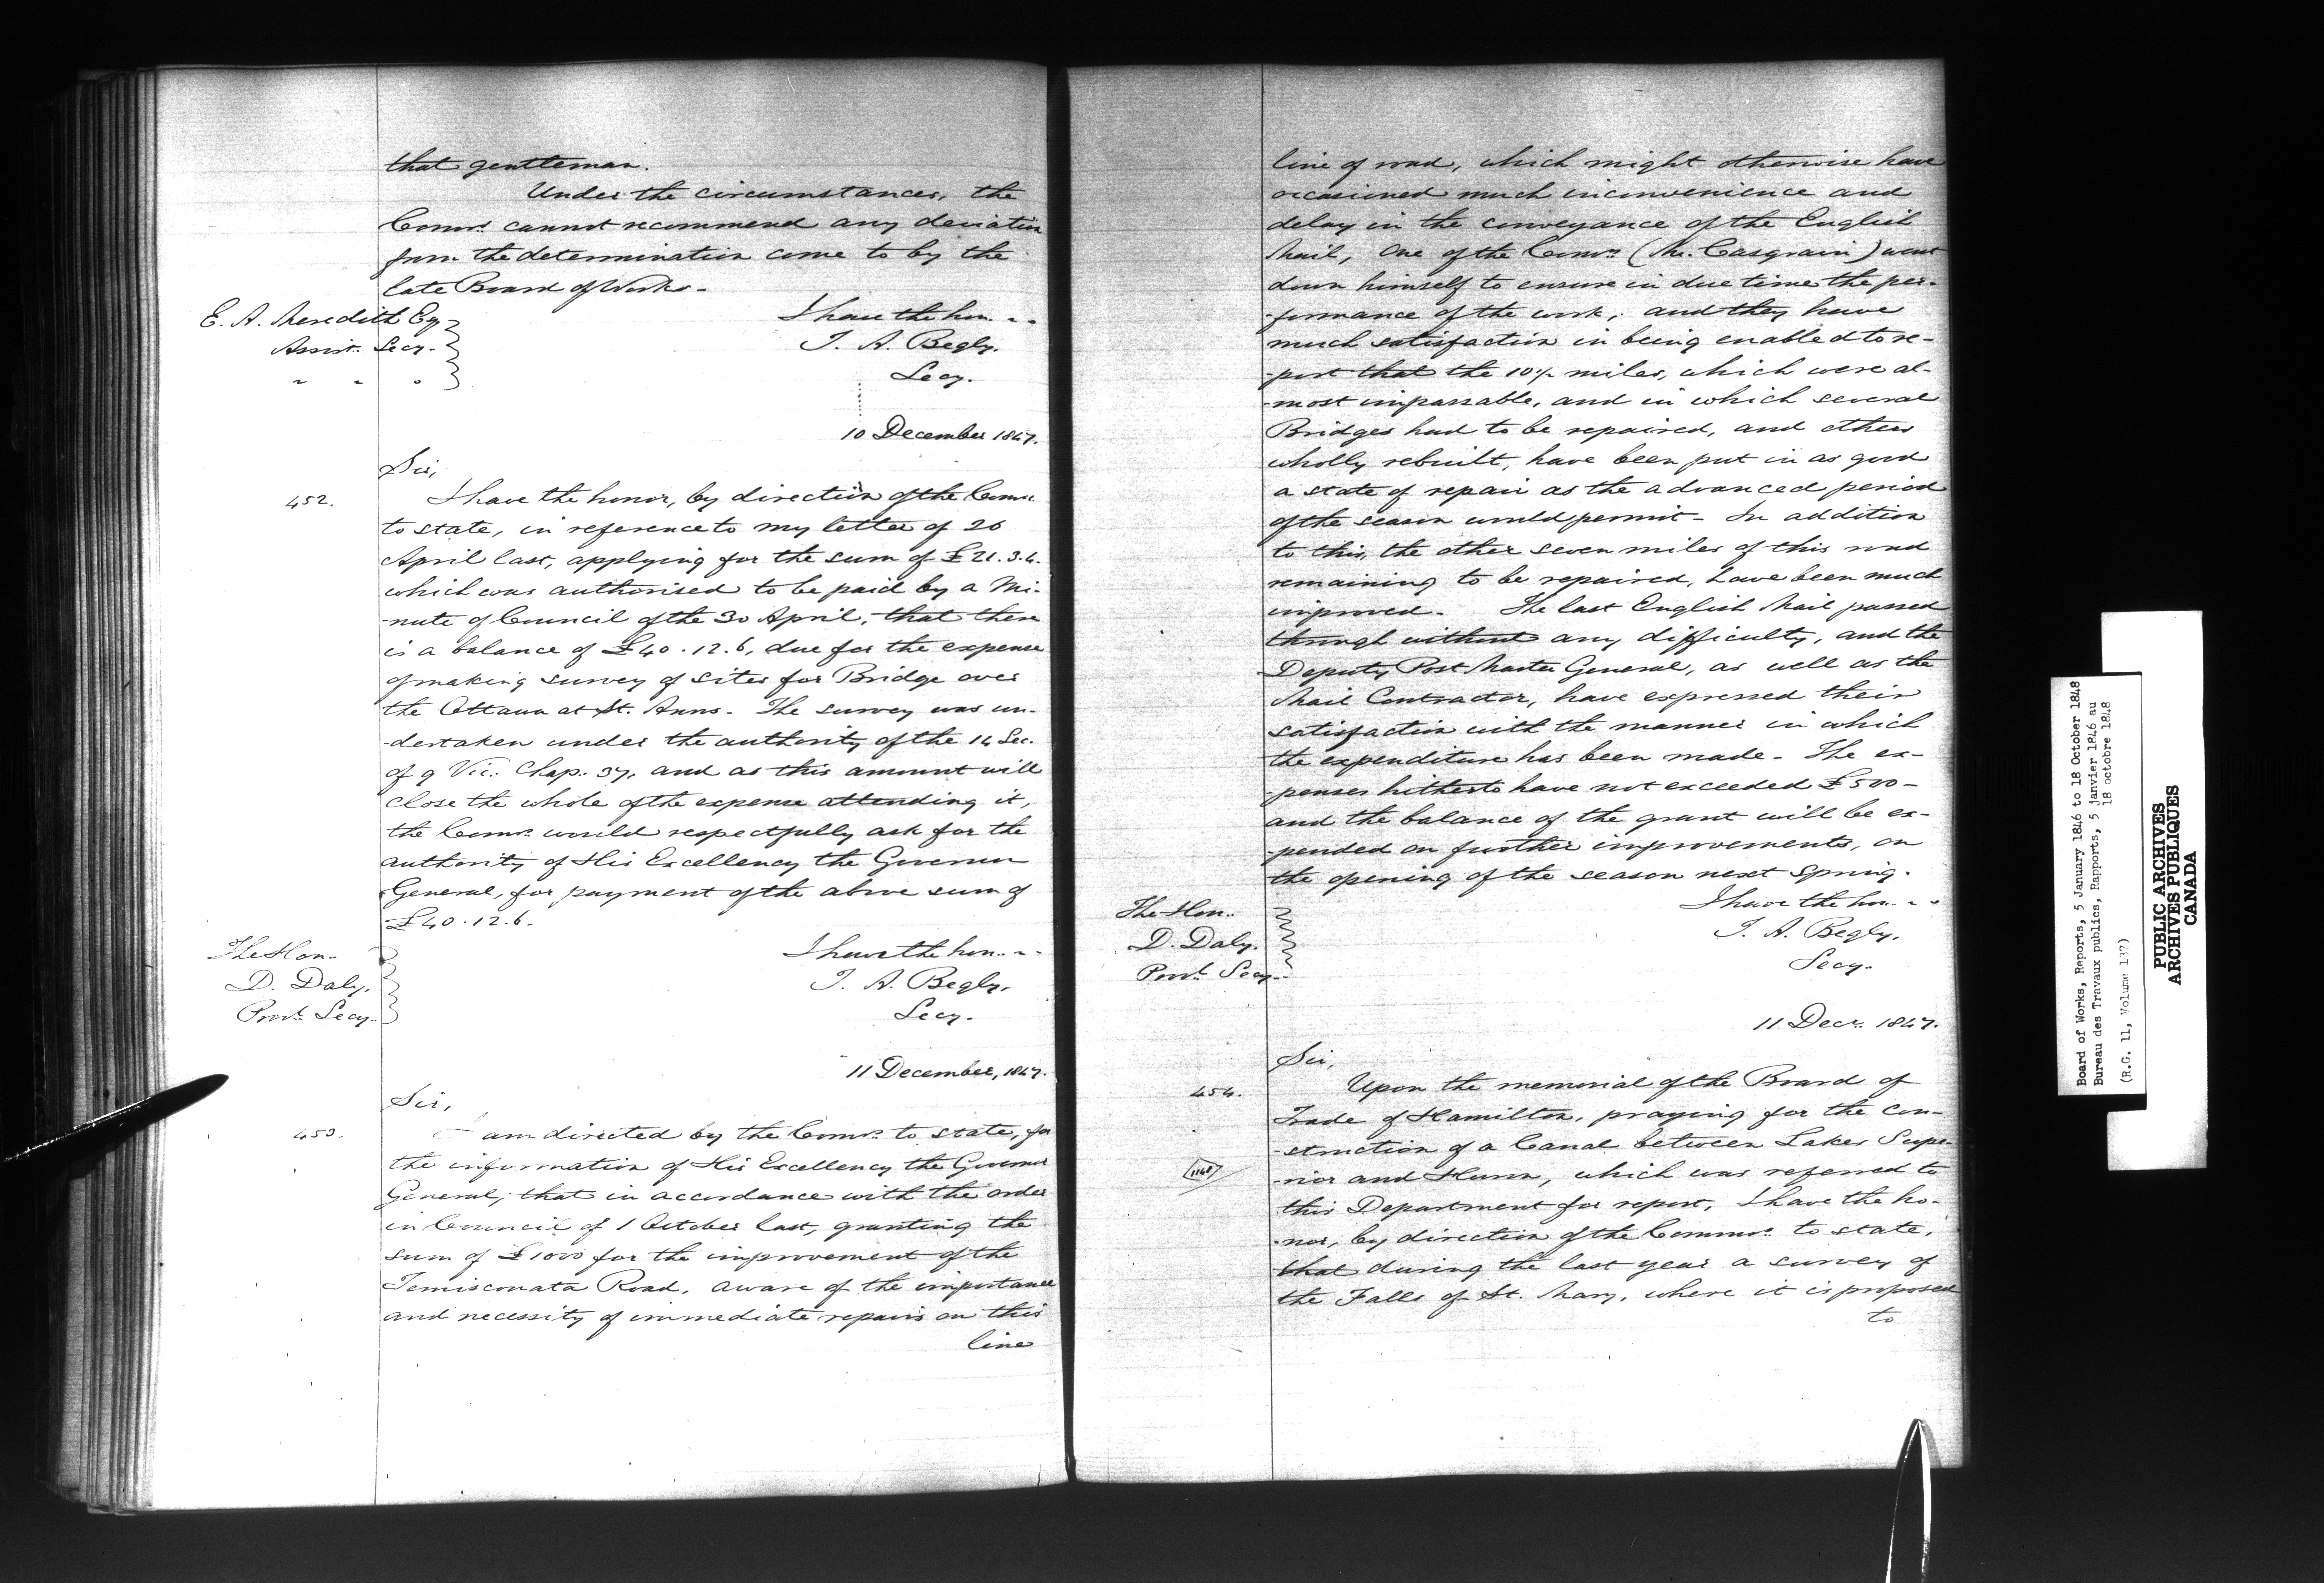 that gentleman.
Under the circumstances, the
Comrs. cannot recommend any deviation
from the determination come to by the
late Board of Works-
I have the hon. --
E. A. Meredith Esq
Assist. Secy.
" " "
T. A. Begly.
Secy.
10 December 1847.
Sir,
452.
I have the honor, by direction of the Comrs.
to state, in reference to my letter of 26
April last, applying for the sum of £21.3.4.
which was authorised to be paid by a Mi-
-nute of Council of the 30 April, that there
is a balance of £40.12.6, due for the expense
of making survey of sites for Bridge over
the Ottawa at St. Anns- The survey was un-
-dertaken under the authority of the 14 Sec.
of 9 Vic. Chap. 37, and as this amount will
close the whole of the expense attending it,
the Comrs. would respectfully ask for the
authority of His Excellency the Governor
General, for payment of the above sum of
£40.12.6.
The Hon.
D. Daly.
Provl. Secy.
I have the hon. --
T. A. Begly.
Secy.
11 December, 1847.
Sir,
453.
am directed by the Comrs. to state, for
the information of His Excellency the Governor
General, that in accordance with the order
in Council of 1 October last, granting the
sum of £1000 for the improvement of the
Temisconata Road, aware of the importance
and necessity of immediate repairs on this
line
line of road, which might otherwise have
occasioned much inconvenience and
delay in the conveyance of the English
Mail, One of the Comrs. (Mr. Casgrain) went
down himself to ensure in due time the per-
-formance of the work, and they have
much satisfaction in being enabled to re-
-port that the 10½ miles, which were al-
-most impassable, and in which several
Bridges had to be repaired, and others
wholly rebuilt, have been put in as good
a state of repair as the advanced period
of the season would permit- In addition
to this, the other seven miles of this road
remaining to be repaired, have been much
improved- The last English Mail passed
through without any difficulty, and the
Deputy Post Master General, as well as the
Mail Contractor, have expressed their
satisfaction with the manner in which
the expenditure has been made- The ex-
-penses hitherto have not exceeded £500-
and the balance of the grant will be ex-
-pended on further improvements, on
the opening of the season next spring.
I have the hon. --
The Hon.
D. Daly.
Provl. Secy.
T. A. Begly.
Secy.
11 Decr. 1847.
Sir,
454.
Upon the memorial of the Board of
Trade of Hamilton, praying for the con-
-struction of a Canal between Lakes Supe-
-rior and Huron, which was referred to
this Department for report, I have the ho-
-nor, by direction of the Commrs. to state,
that during the last year a survey of
the Falls of St. Mary, where it is proposed
to
Board of Works, Reports, 5 January 1846 to 18 October 1848
Bureau des Travaux publics, Rapports, 5 janvier 1846 au
18 octobre 1848
(R.G. 11, Volume 137)
PUBLIC ARCHIVES
ARCHIVES PUBLIQUES
CANADA